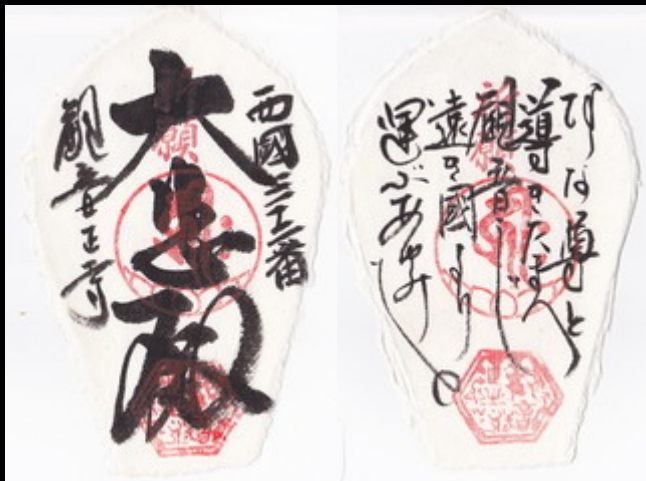 西國三十二番
大悲殿
觀音正寺
あな尊と
導きたまへ
觀音じ
遠き國より
運ぶあゆみを